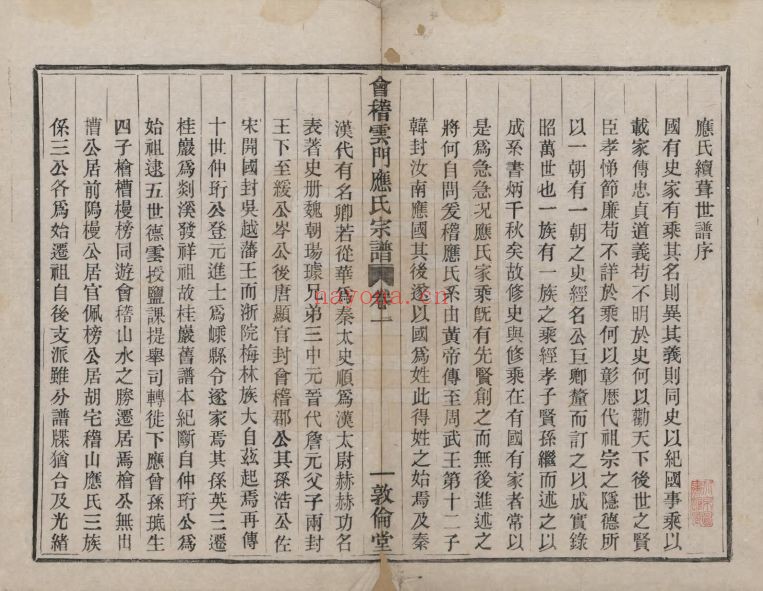 應氏續葺世譜序
國有史家有乘其名則異其義則同史以紀國事乘以
載家傳忠貞道義苟不明於史何以勸天下後世之賢
臣孝悌節廉苟不詳於乘何以彰歷代祖宗之隱德所
以一朝有一朝之史經名公巨卿釐而訂之以成實錄
昭萬世也一族有一族之乘經孝子賢孫繼而述之以
成系書炳千秋矣故修史與修乘在有國有家者常以
是爲急急況應氏家乘旣有先賢創之而無後進述之
將何自問爰稽應氏系由黃帝傳至周武王第十二子
韓封汝南應國其後遂以國爲姓此得姓之始焉及秦
會稽雲門應氏宗譜
卷一
一
敦倫堂
漢代有名卿若從華爲秦太史順爲漢太尉赫赫功名
表著史册魏朝瑒璩兄弟三中元晉代詹元父子兩封
王下至綏公岑公後唐顯官封會稽郡公其孫浩公佐
宋開國封吳越藩王而浙院梅林族大自茲起焉再傳
十世仲珩公登元進士爲嵊縣令遂家焉其孫英三遷
桂巖爲剡溪發祥祖故桂巖舊譜本紀斷自仲珩公爲
始祖逮五世德雲授鹽課提舉司轉徙下應曾孫瑞生
四子檜槽槾榜同遊會稽山水之勝遷居焉檜公無出
槽公居前隖槾公居官佩榜公居胡宅稽山應氏三族
係三公各爲始遷祖自後支派雖分譜牒猶合及光緒
navona.cn